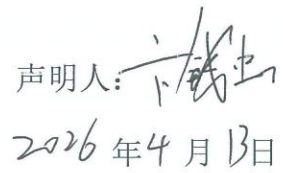 声明人：
2026年4月13日